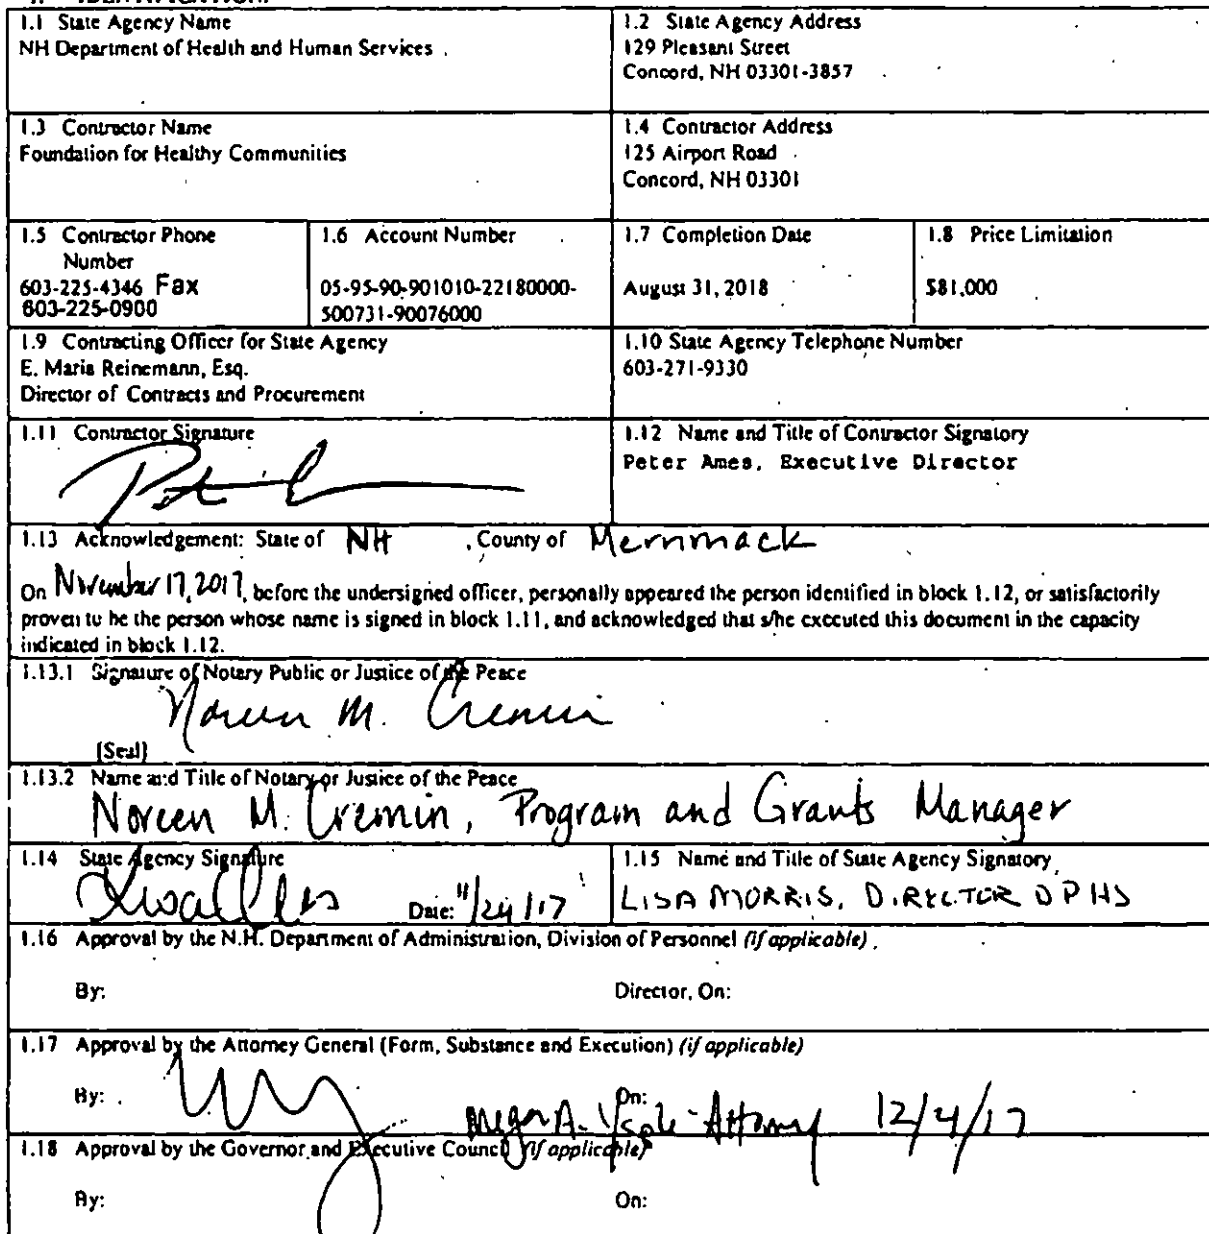 1.1 State Agency Name
NH Department of Health and Human Services
1.2 State Agency Address
129 Pleasant Street
Concord, NH 03301-3857
1.3 Contractor Name
Foundation for Healthy Communities
1.4 Contractor Address
125 Airport Road
Concord, NH 03301
1.5 Contractor Phone
Number
603-225-4346 Fax
603-225-0900
1.6 Account Number
05-95-90-901010-22180000-
500731-90076000
1.7 Completion Date
August 31, 2018
1.8 Price Limitation
$81,000
1.9 Contracting Officer for State Agency
E. Maria Reinemann, Esq.
Director of Contracts and Procurement
1.10 State Agency Telephone Number
603-271-9330
1.11 Contractor Signature
1.12 Name and Title of Contractor Signatory
Peter Ames, Executive Director
1.13 Acknowledgement: State of NH , County of Merrimack
On November 17, 2017, before the undersigned officer, personally appeared the person identified in block 1.12, or satisfactorily
proven to be the person whose name is signed in block 1.11, and acknowledged that s/he executed this document in the capacity
indicated in block 1.12.
1.13.1 Signature of Notary Public or Justice of the Peace
Noreen M. Cremin
[Seal]
1.13.2 Name and Title of Notary or Justice of the Peace
Noreen M. Cremin, Program and Grants Manager
1.14 State Agency Signature
Date: 11/24/17
1.15 Name and Title of State Agency Signatory
LISA MORRIS, DIRECTOR DPHS
1.16 Approval by the N.H. Department of Administration, Division of Personnel (if applicable)
By:
Director, On:
1.17 Approval by the Attorney General (Form, Substance and Execution) (if applicable)
By:
On:
Megan A. - Attorney 12/4/17
1.18 Approval by the Governor and Executive Council (if applicable)
By:
On: